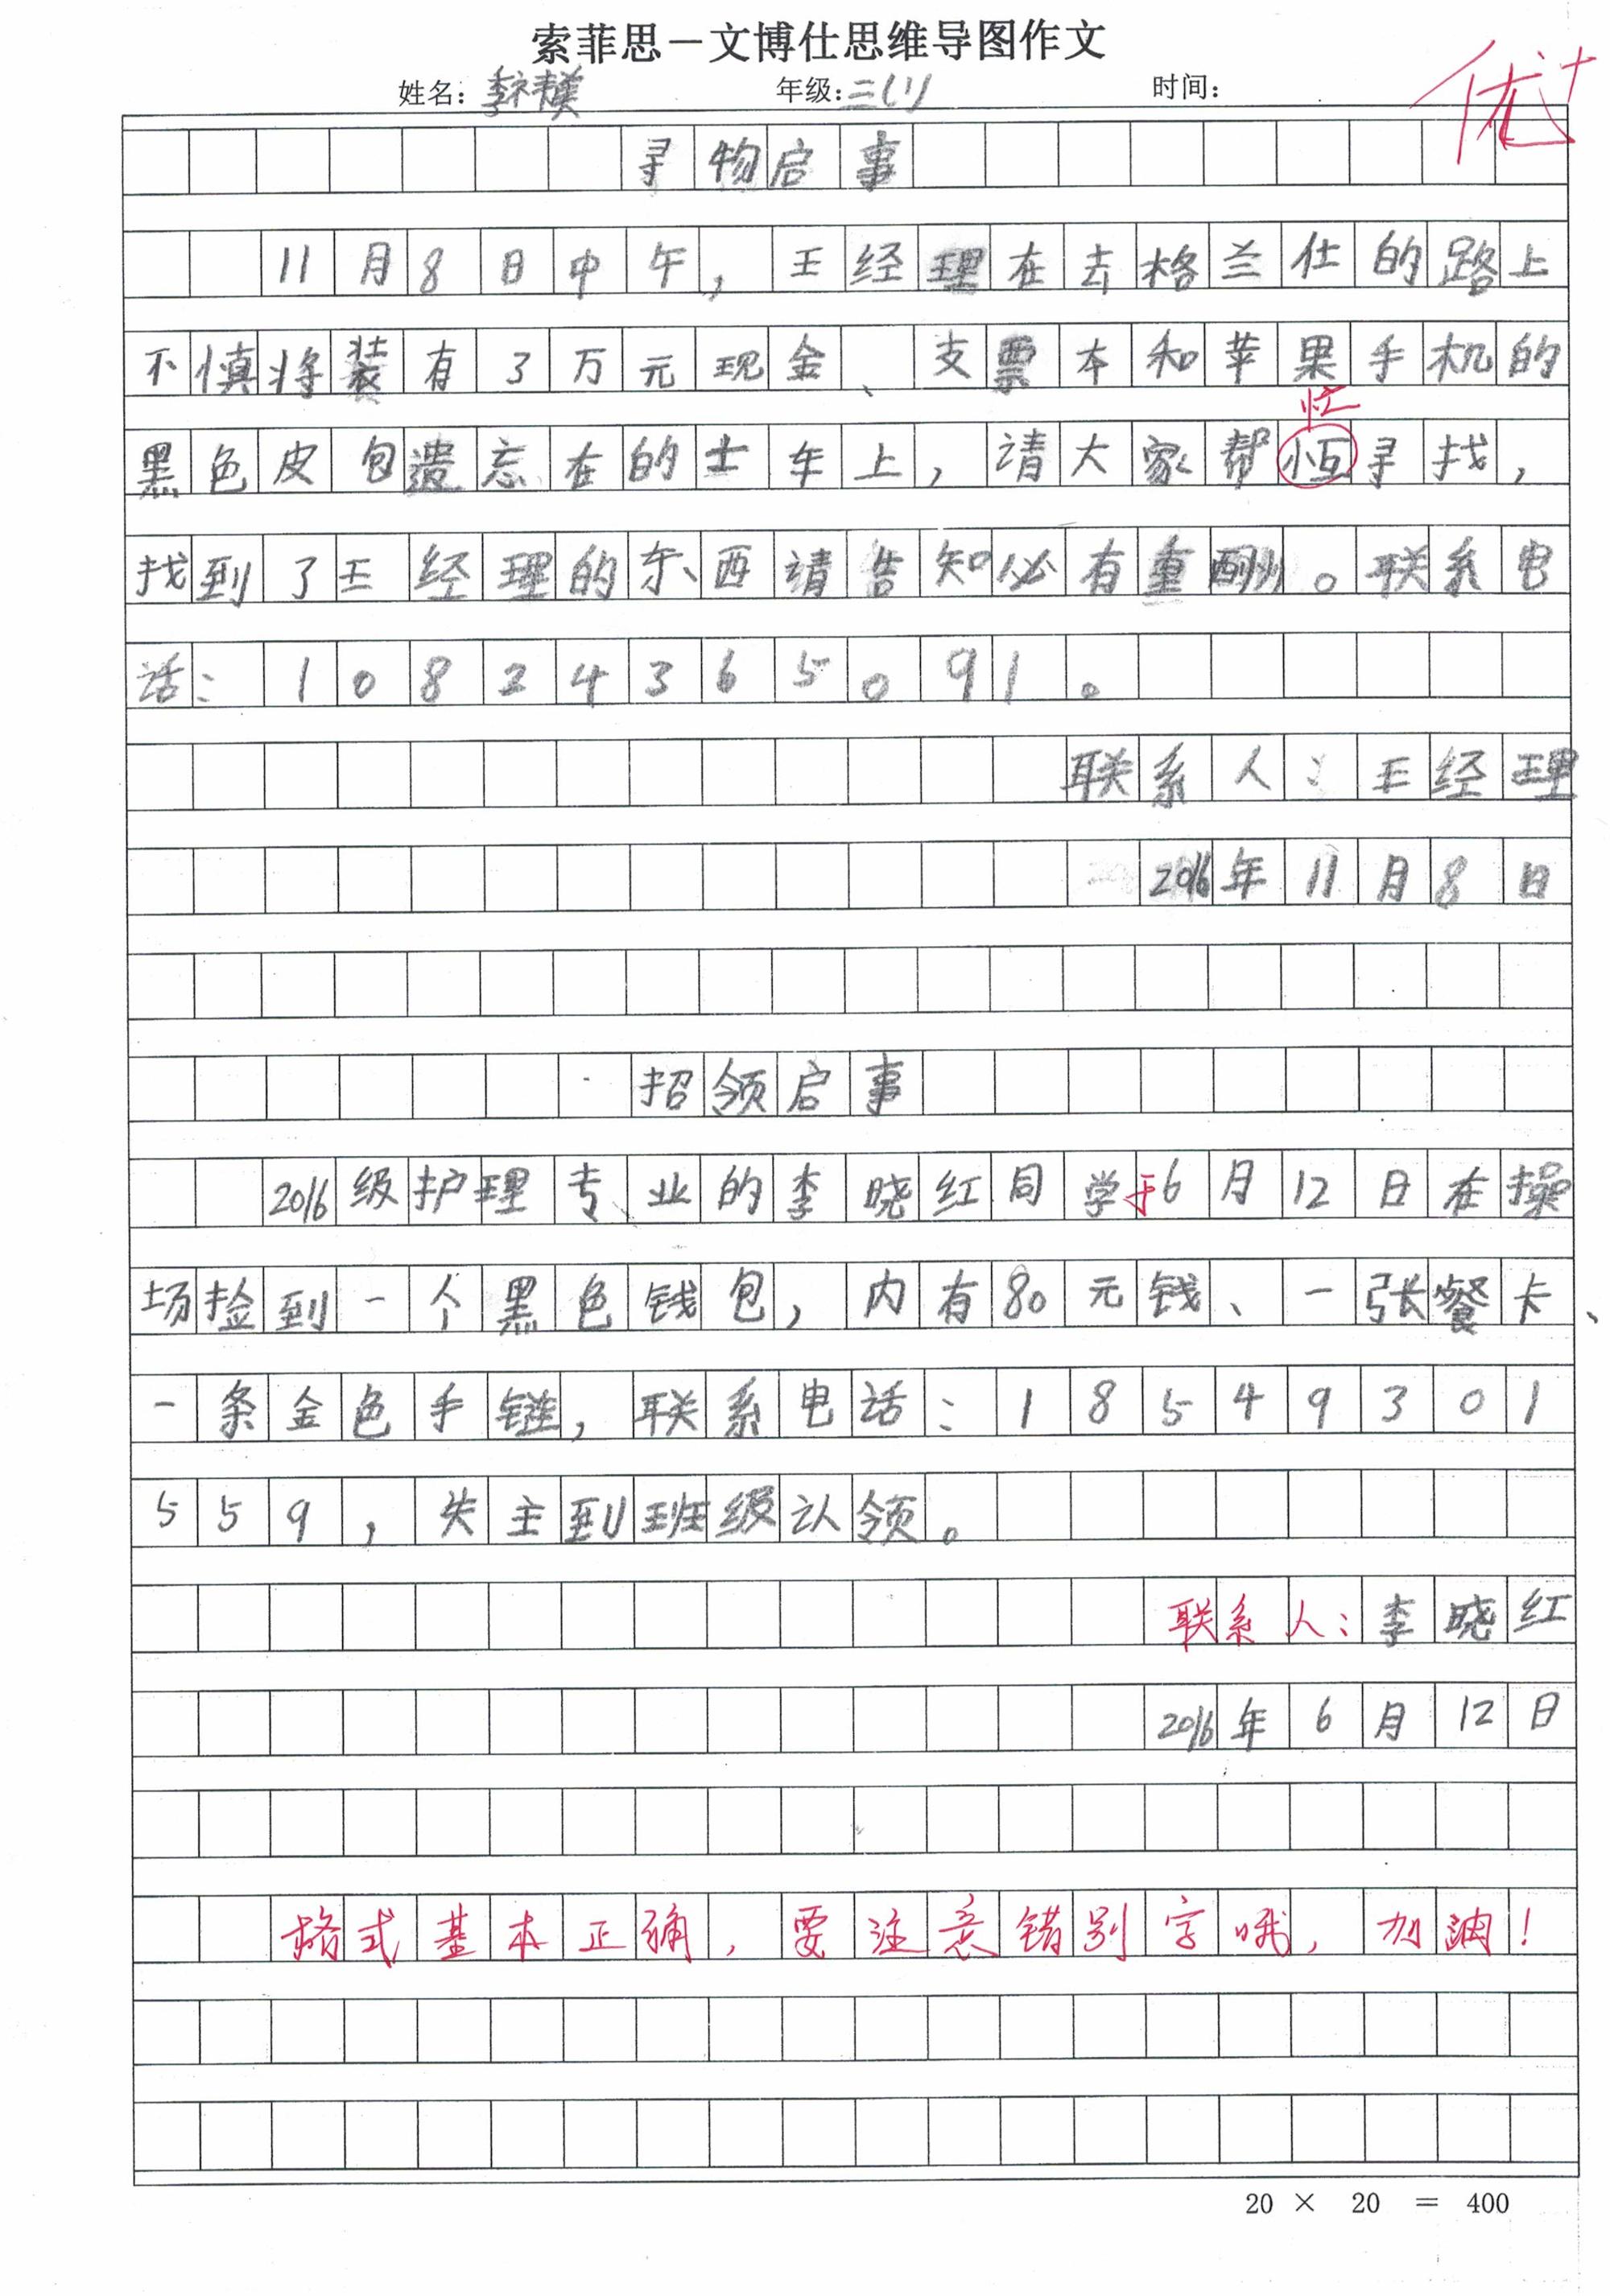 索菲思－文博仕思维导图作文
姓名：李祎美 年级：三(1) 时间：
优+
寻物启事
11月8日中午，王经理在去格兰仕的路上
不慎将装有3万元现金、支票本和苹果手机的
忙
黑色皮包遗忘在的士车上，请大家帮恒寻找，
找到了王经理的东西请告知必有重酬。联系电
话：10824365091。
联系人：王经理
2016年11月8日
招领启事
2016级护理专业的李晓红同学于6月12日在操
场捡到一个黑色钱包，内有80元钱、一张餐卡、
一条金色手链，联系电话：18549301
559，失主到班级认领。
联系人：李晓红
2016年6月12日
格式基本正确，要注意错别字哦，加油！
20 × 20 = 400